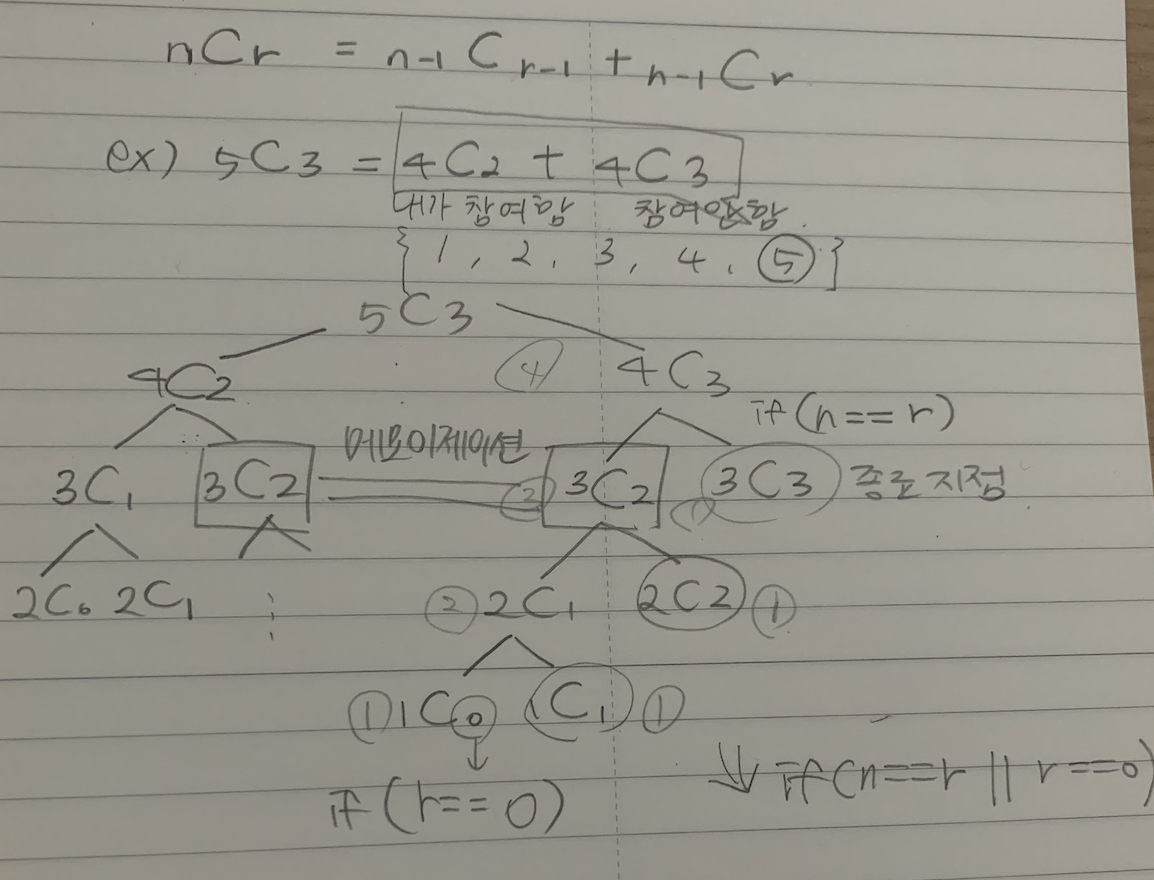 nCr = n-1Cr-1 + n-1Cr
ex) 5C3 = 4C2 + 4C3
내가 참여함 참여안함
{ 1, 2, 3, 4, ⑤ }
5C3
4C2 ④ 4C3
if(n==r)
메모이제이션
3C1 3C2 ③ 3C2 ① 3C3 종료지점
2C0 2C1 ② 2C1 2C2 ①
① 1C0 1C1 ①
if(r==0) ↓ if(n==r || r==0)